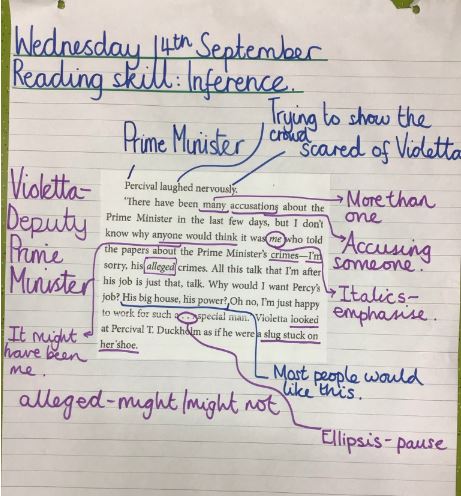 Wednesday 14th September
Reading skill: Inference.
Trying to show the
crowd
Prime Minister
scared of Violetta
Violetta-
Deputy
Prime
Minister
Percival laughed nervously.
"There have been many accusations about the
Prime Minister in the last few days, but I don't
know why anyone would think it was me who told
the papers about the Prime Minister's crimes—I'm
sorry, his alleged crimes. All this talk that I'm after
his job is just that, talk. Why would I want Percy's
job? His big house, his power? Oh no, I'm just happy
to work for such a . . . special man. Violetta looked
at Percival T. Duckholm as if he were a slug stuck on
her shoe.
More than
one
Accusing
someone.
Italics-
emphasise.
It might
have been
me.
Most people would
like this.
alleged-might/might not
Ellipsis-pause